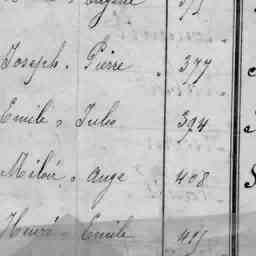 Eugène
Joseph. Pierre 377
Emile " Jules 394
" Ange 408
Henri " Emile